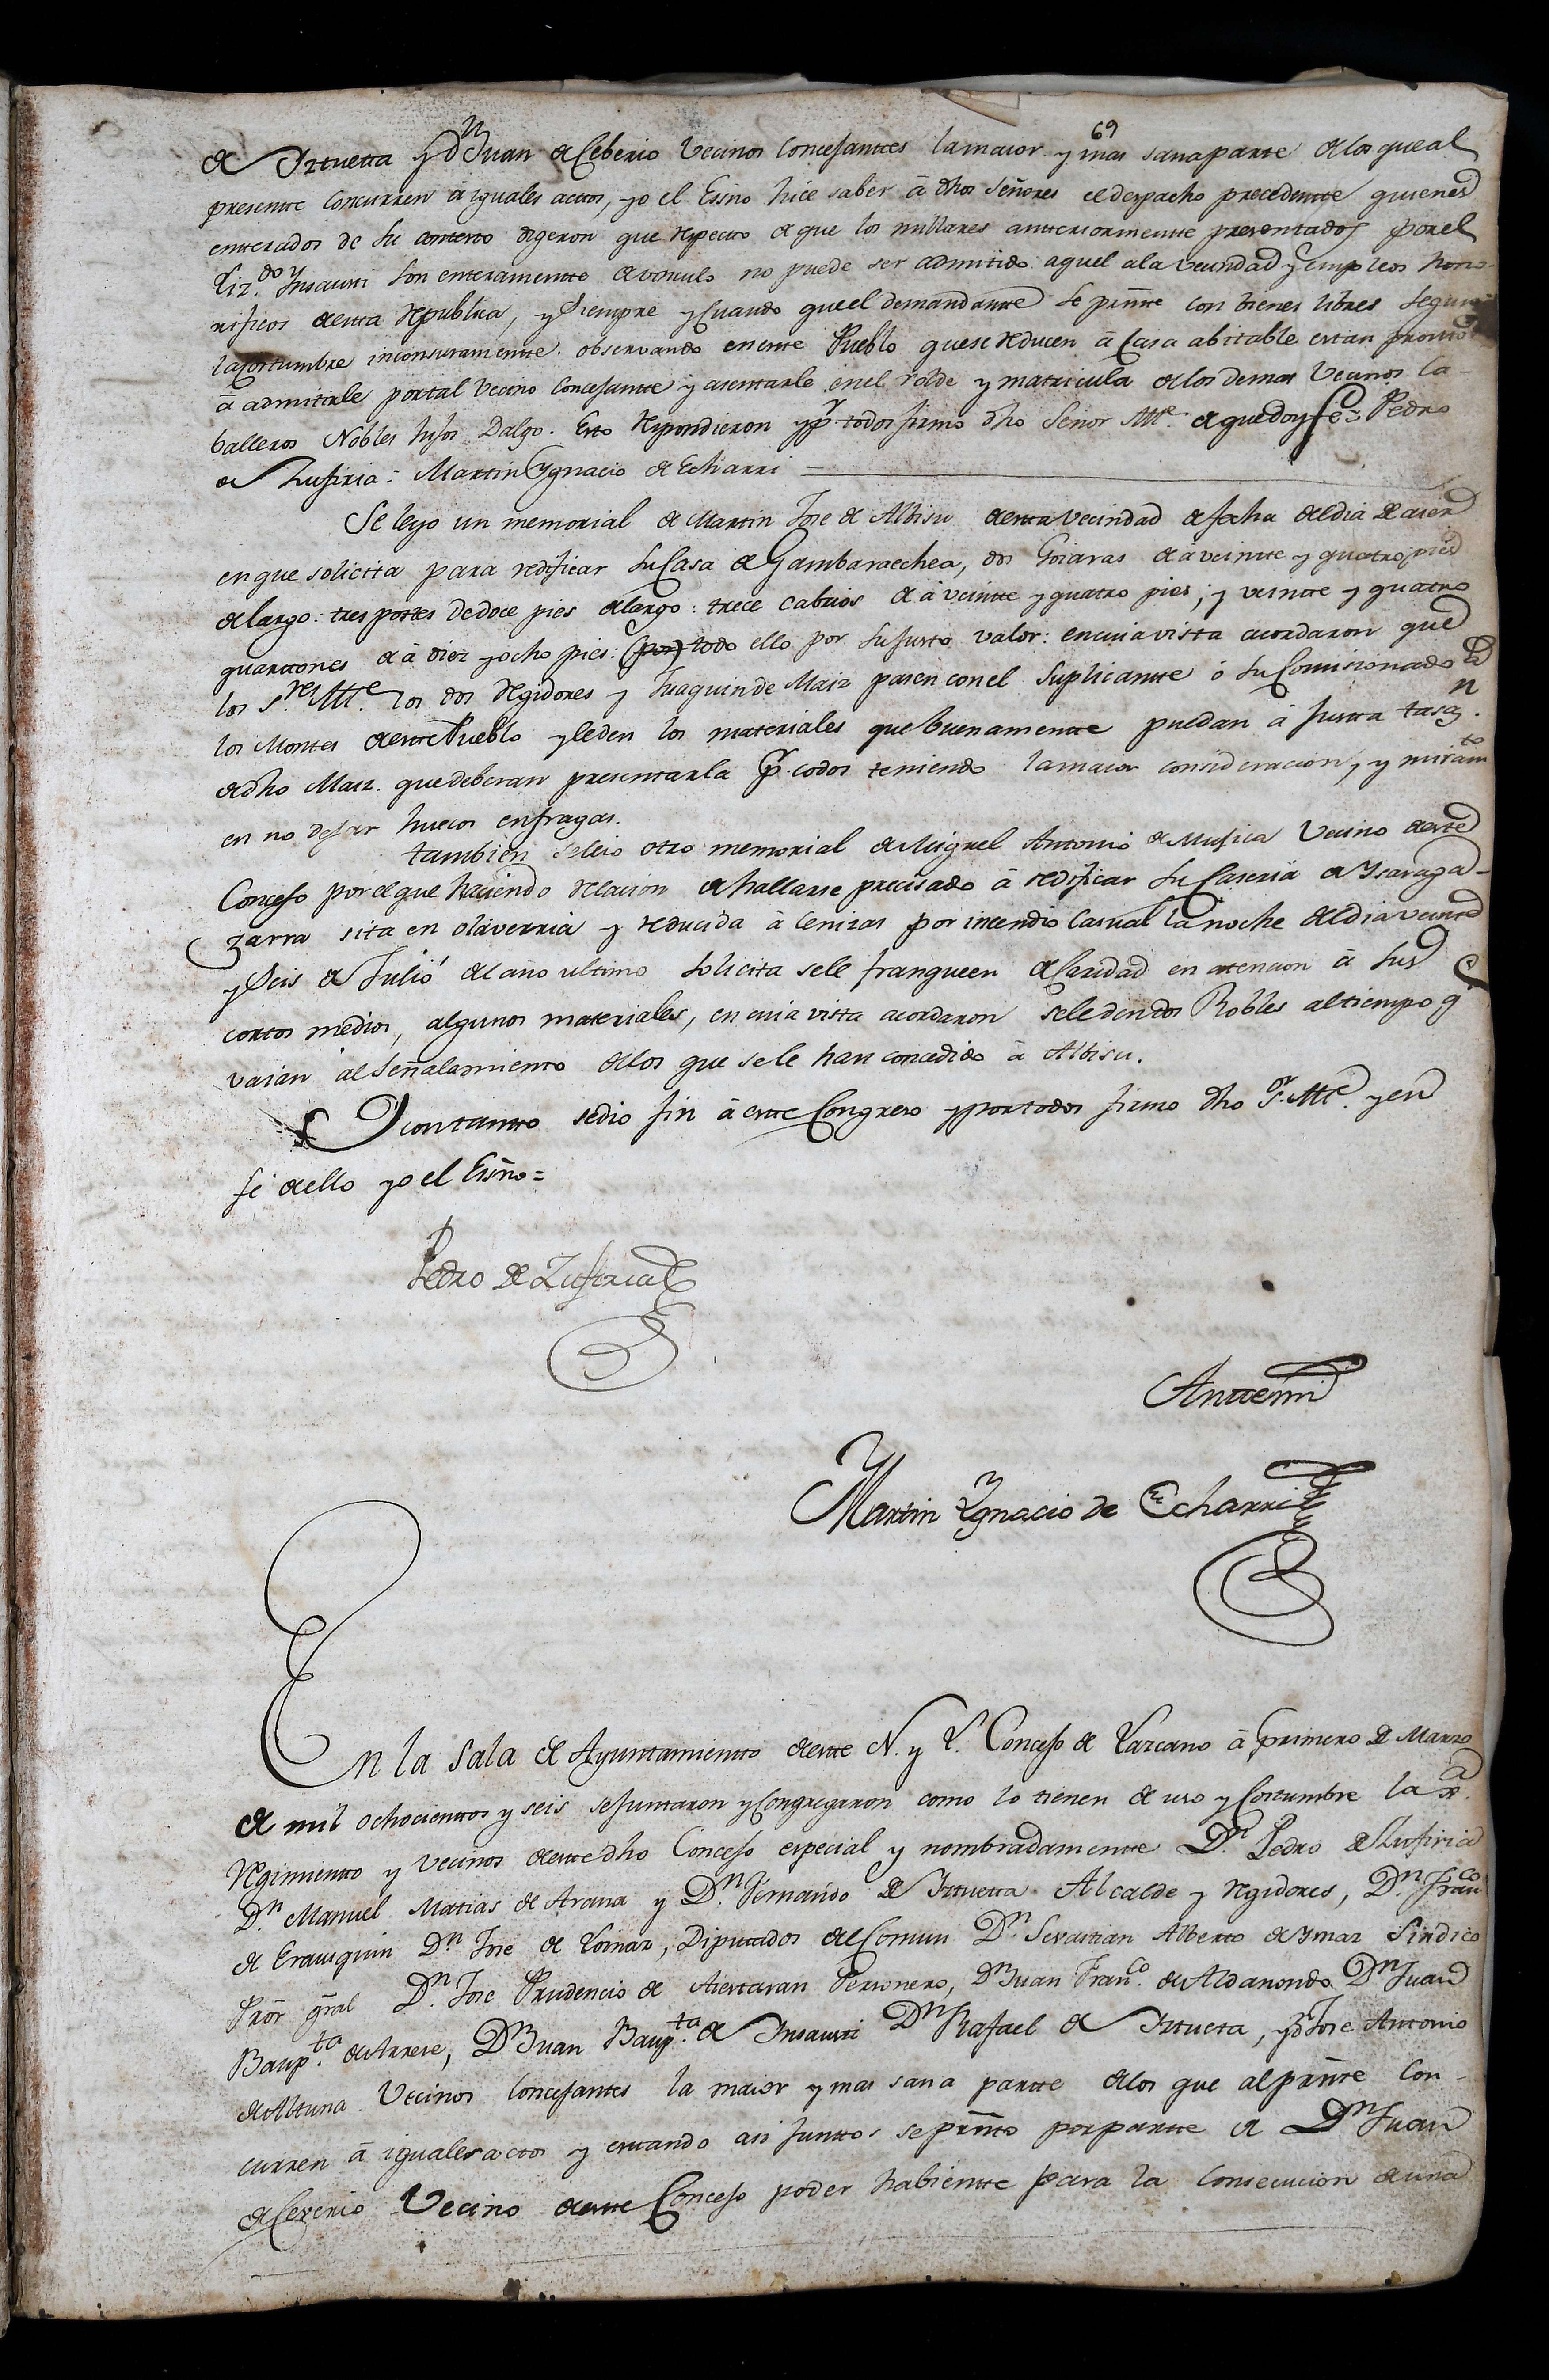 69
de Iztuetta y Dn Juan de Ceberio Vecinos Concejantes la maior y mas sana parte de los que al
presente concurren à iguales actos, yo el Essno hice saber à dhos Señores el despacho precedente quienes
entterados de su contesto digeron que respecto de que los millares antteriormentte presentados por el
Liz.do Ynsausti son enteramentte de vinculo no puede ser admitido aquel a la vecindad y empleos hono-
rificos de esta republica, y siempre y cuando que el demandante se prnte con bienes libres segun
la costumbre inconsuramentte observando en este Pueblo que se reducen à Casa abitable estan promtos
à admitirle por tal Vecino Concejante y asentarle en el rolde y matricula de los demas Vecinos Ca-
balleros Nobles hijos Dalgo. Esto respondieron y pr todos firmo dho Señor Alte. de que doy fe = Pedro
de Lusiria = Martin Ygnacio de Echarri
Se leyo un memorial de Martin Jose de Albisu de esta vecindad de fecha del dia de aier
en que solicita para redificar su Casa de Gambaraechea, dos Goiaras de à veintte y quatro pies
de largo: tres postes de doce pies de largo: trece cabrios de à veintte y quatro pies; y veintte y quatro
quarttones de à diez y ocho pies: (por) todo ello por su justo valor: en cuia vista acordaron que
los S.res Alte. los dos Regidores y Juaquin de Maiz pasen con el Suplicante ó su Comisionado a
los Montes de este Pueblo y le den los materiales que buenamente puedan à justa tasn.
de dho Maiz. que deberan presentarla pr. todos teniendo la maior consideracion, y miramto
en no dejar huecos en fragas.
tambien se leio otro memorial de Miguel Antonio de Mujica Vecino de este
Concejo por el que haciendo relacion de hallarse precisado à redificar su Caseria de Ysaraga-
zarra sita en Olaverria y reducida à Cenizas por incendio Casual la noche del dia veinte
y Seis de Julio del año ultimo solicita se le franqueen de Caridad en atencion à sus
cortos medios, algunos materiales, en cuia vista acordaron se le den dos Robles al tiempo q.
vaian al señalamiento de los que se le han concedido à Albisu.
Y con tanto se dio fin à este Congreso y por todos firmo dho Sr. Alte. y en
fe de ello yo el Essno =
Pedro de Lusiria
Antte mi
Martin Ygnacio de Echarri
En la Sala de Ayuntamientto de este N. y L. Concejo de Lazcano à primero de Marzo
de mil ochocienttos y seis se juntaron y Congregaron como lo tienen de uso y Costumbre la
Regimientto y vecinos de este dho Concejo especial y nombradamente Dn. Pedro de Lusiria
Dn. Manuel Matias de Arana y Dn. Fernando de Iztuetta Alcalde y Regidores, Dn. Franco
de Erausquin Dn. Jose de Loinaz, Diputtados del Comun Dn. Sevastian Alberto de Ymaz Sindico
Pror gral Dn. Jose Prudencio de Aiestaran Personero, Dn Juan Franco. de Aldanondo Dn Juan
Baupta. de Arrese, Dn Juan Baupta. de Insausti Dn Rafael de Iztueta, y Dn Jose Antonio
de Altuna Vecinos Concejantes la maior y mas sana partte de los que al prnte Con-
curren à iguales actos y estando asi junttos se prnto por partte de Dn Juan
de Ceverio Vecino de este Concejo poder habientte para la Consecucion de una